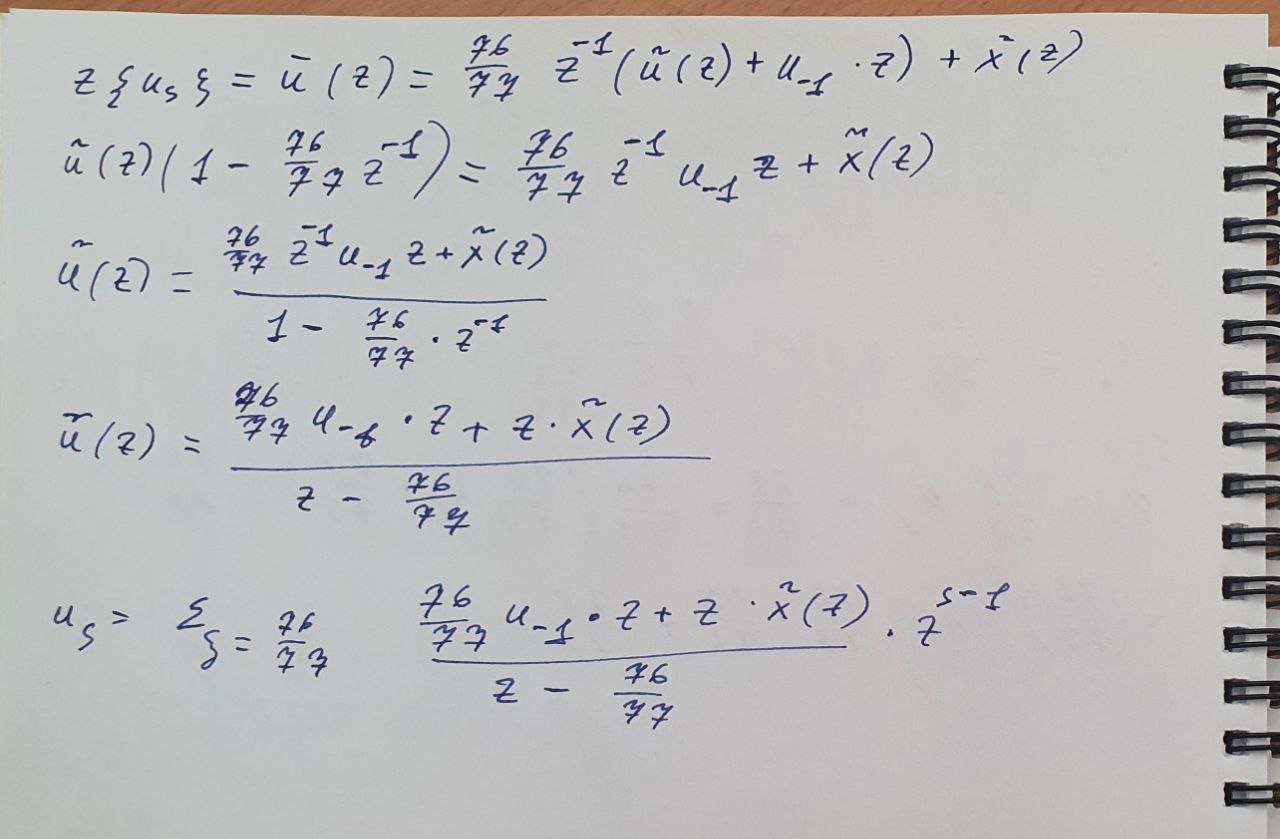 z{u_s} = ū(z) = 76/77 z^-1 (ũ(z) + u_-1 · z) + x̃(z)
ũ(z)(1 - 76/77 z^-1) = 76/77 z^-1 u_-1 z + x̃(z)
ũ(z) = (76/77 z^-1 u_-1 z + x̃(z)) / (1 - 76/77 · z^-1)
ũ(z) = (76/77 u_-1 · z + z · x̃(z)) / (z - 76/77)
u_s = Σ_{ξ = 76/77} (76/77 u_-1 · z + z · x̃(z)) / (z - 76/77) · z^{s-1}